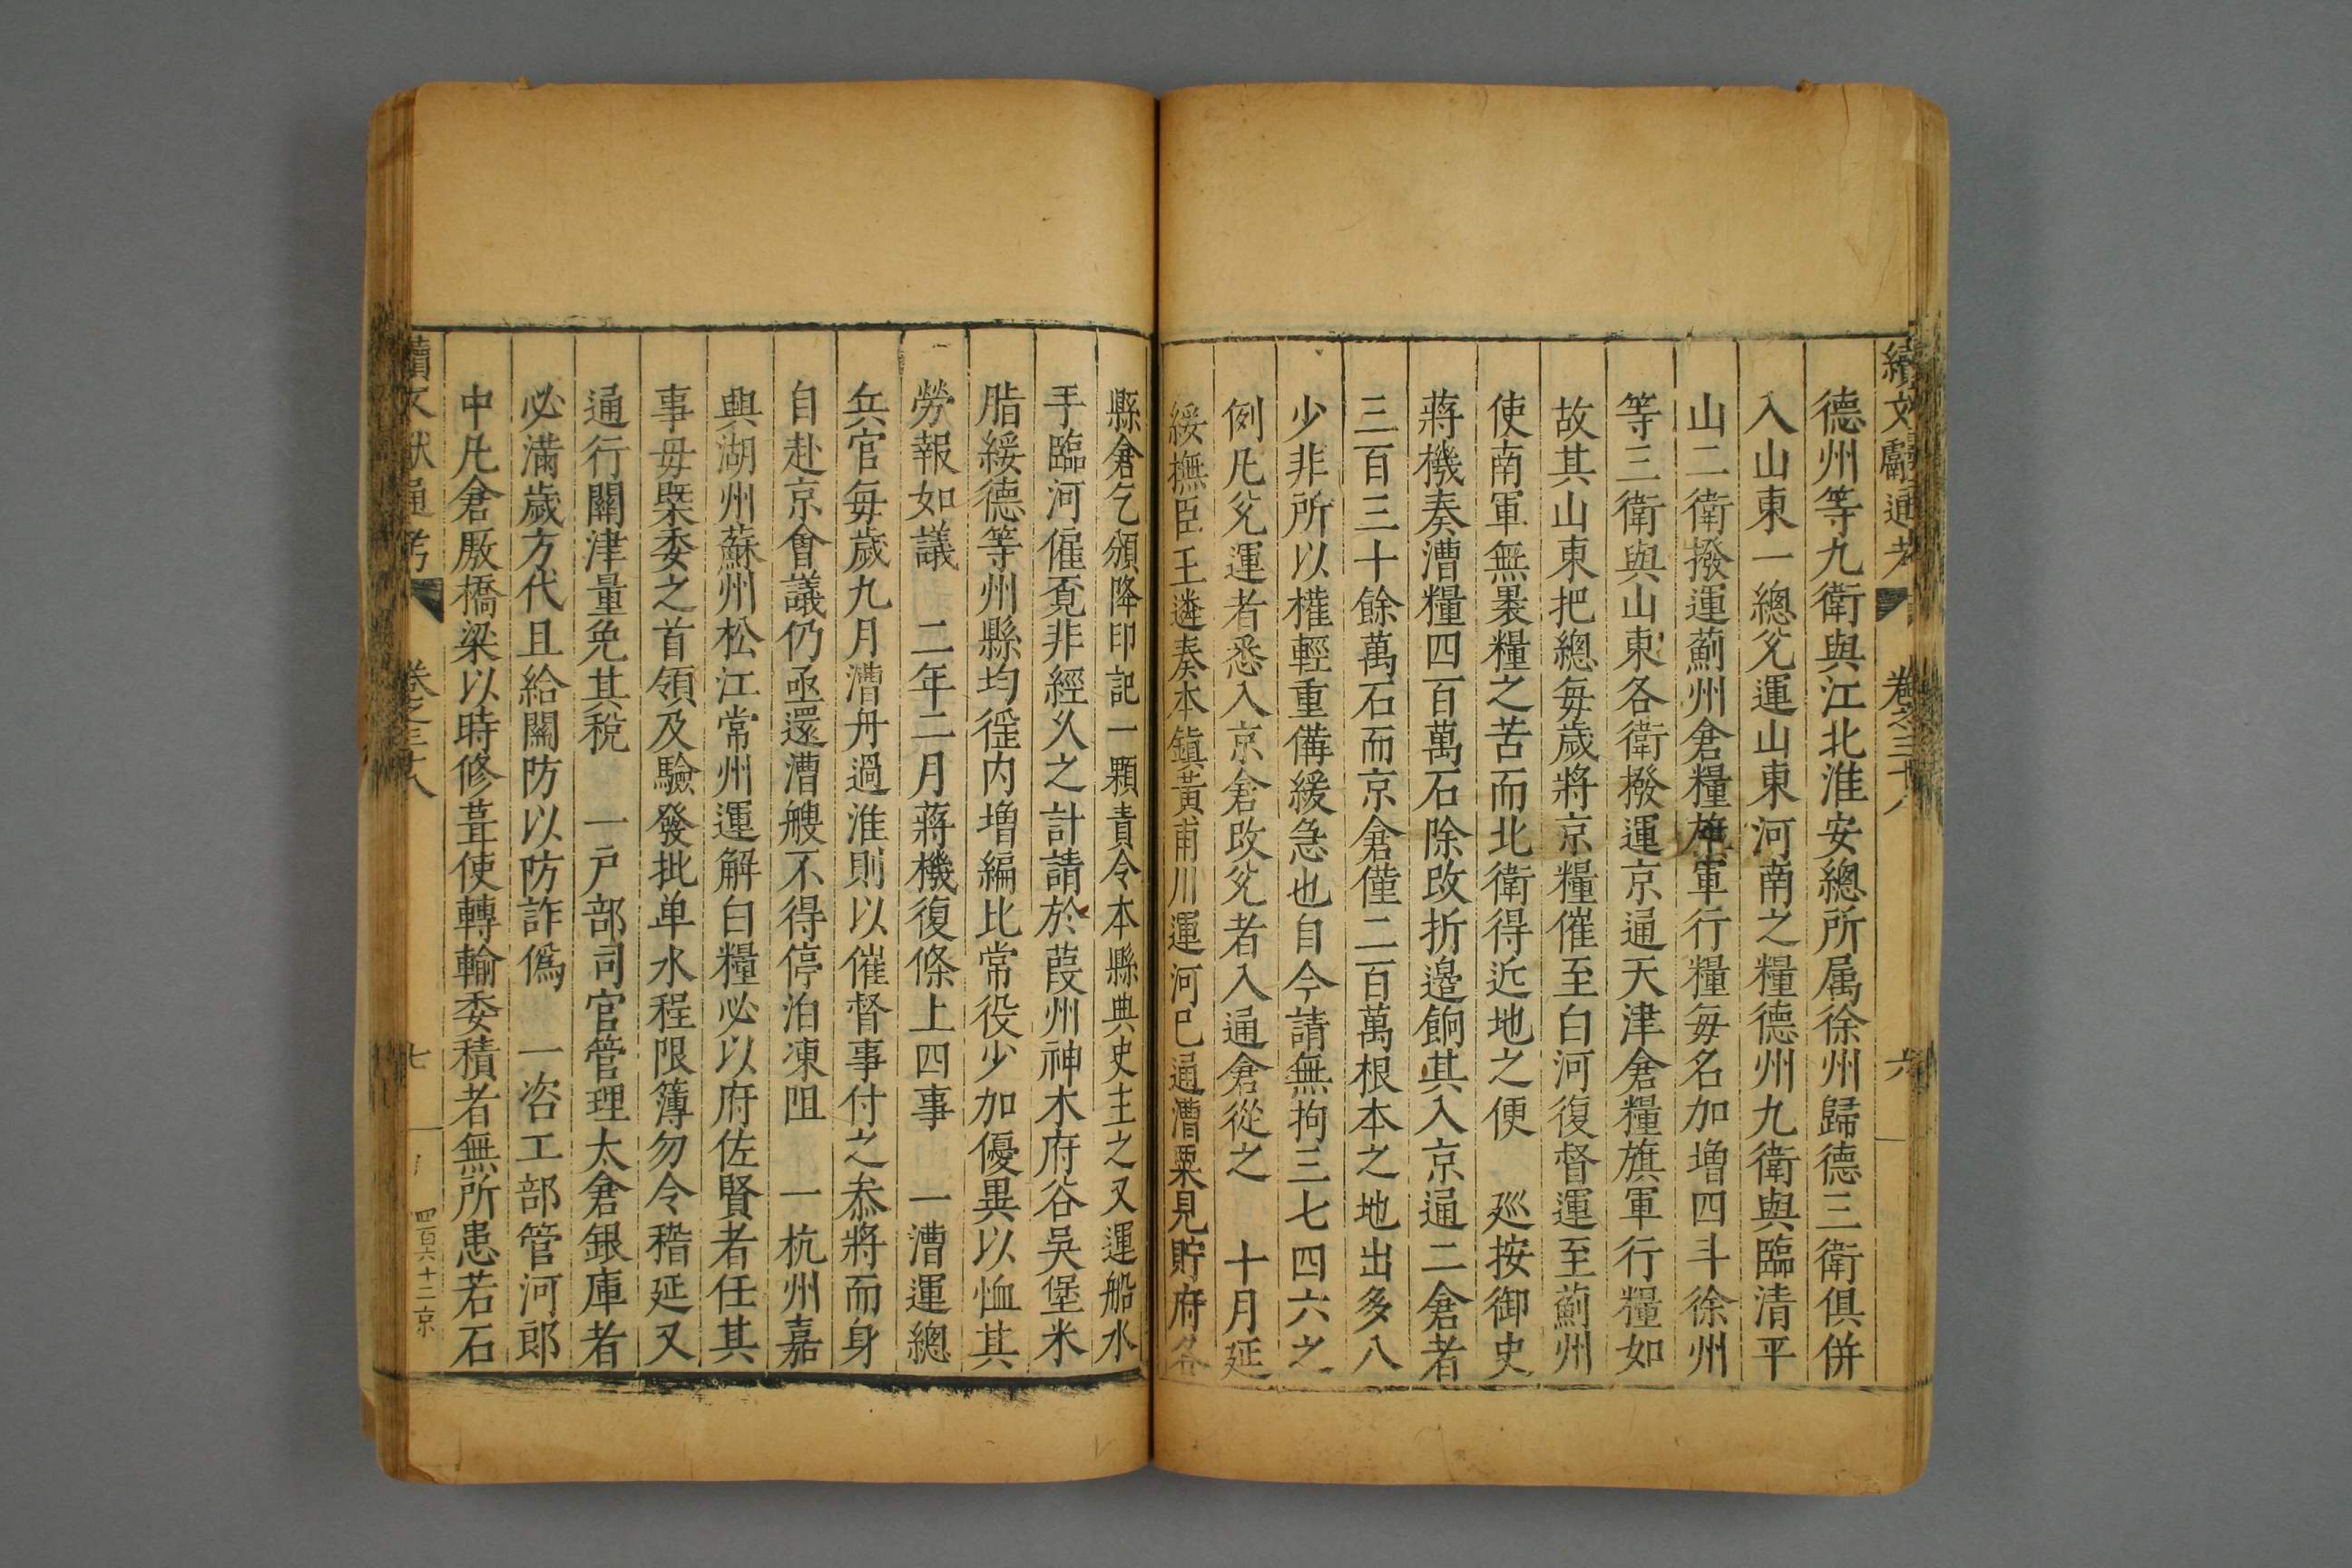 續文獻通考 卷之三十八 六
德州等九衛與江北淮安總所属徐州歸德三衛俱併
入山東一總兌運山東河南之糧德州九衛與臨清平
山二衛撥運薊州倉糧旗軍行糧毎名加增四斗徐州
等三衛與山東各衛撥運京通天津倉糧旗軍行糧如
故其山東把總毎歲將京糧催至白河復督運至薊州
使南軍無褁糧之苦而北衛得近地之便 廵按御史
蔣機奏漕糧四百萬石除改折邉餉其入京通二倉者
三百三十餘萬石而京倉僅二百萬根本之地出多入
少非所以權輕重備緩急也自今請無拘三七四六之
例凡兌運者悉入京倉改兌者入通倉從之 十月延
綏撫臣王遴奏本鎮黃甫川運河巳通漕粟見貯府谷
縣倉乞頒降印記一顆責令本縣典史主之又運船水
手臨河僱覓非經乆之計請於葭州神木府谷吳堡米
脂綏德等州縣均徭内增編比常役少加優異以恤其
勞報如議 二年二月蔣機復條上四事 一漕運總
兵官毎歲九月漕舟過淮則以催督事付之叅將而身
自赴京會議仍亟還漕艘不得停泊凍阻 一杭州嘉
興湖州蘇州松江常州運解白糧必以府佐賢者任其
事毋槩委之首領及驗發批单水程限簿勿令稽延又
通行關津量免其稅 一戸部司官管理太倉銀庫者
必滿歲方代且給關防以防詐僞 一咨工部管河郎
中凡倉厫橋梁以時修葺使轉輸委積者無所患若石
續文獻通考 卷之三十八 七 四百六十二京